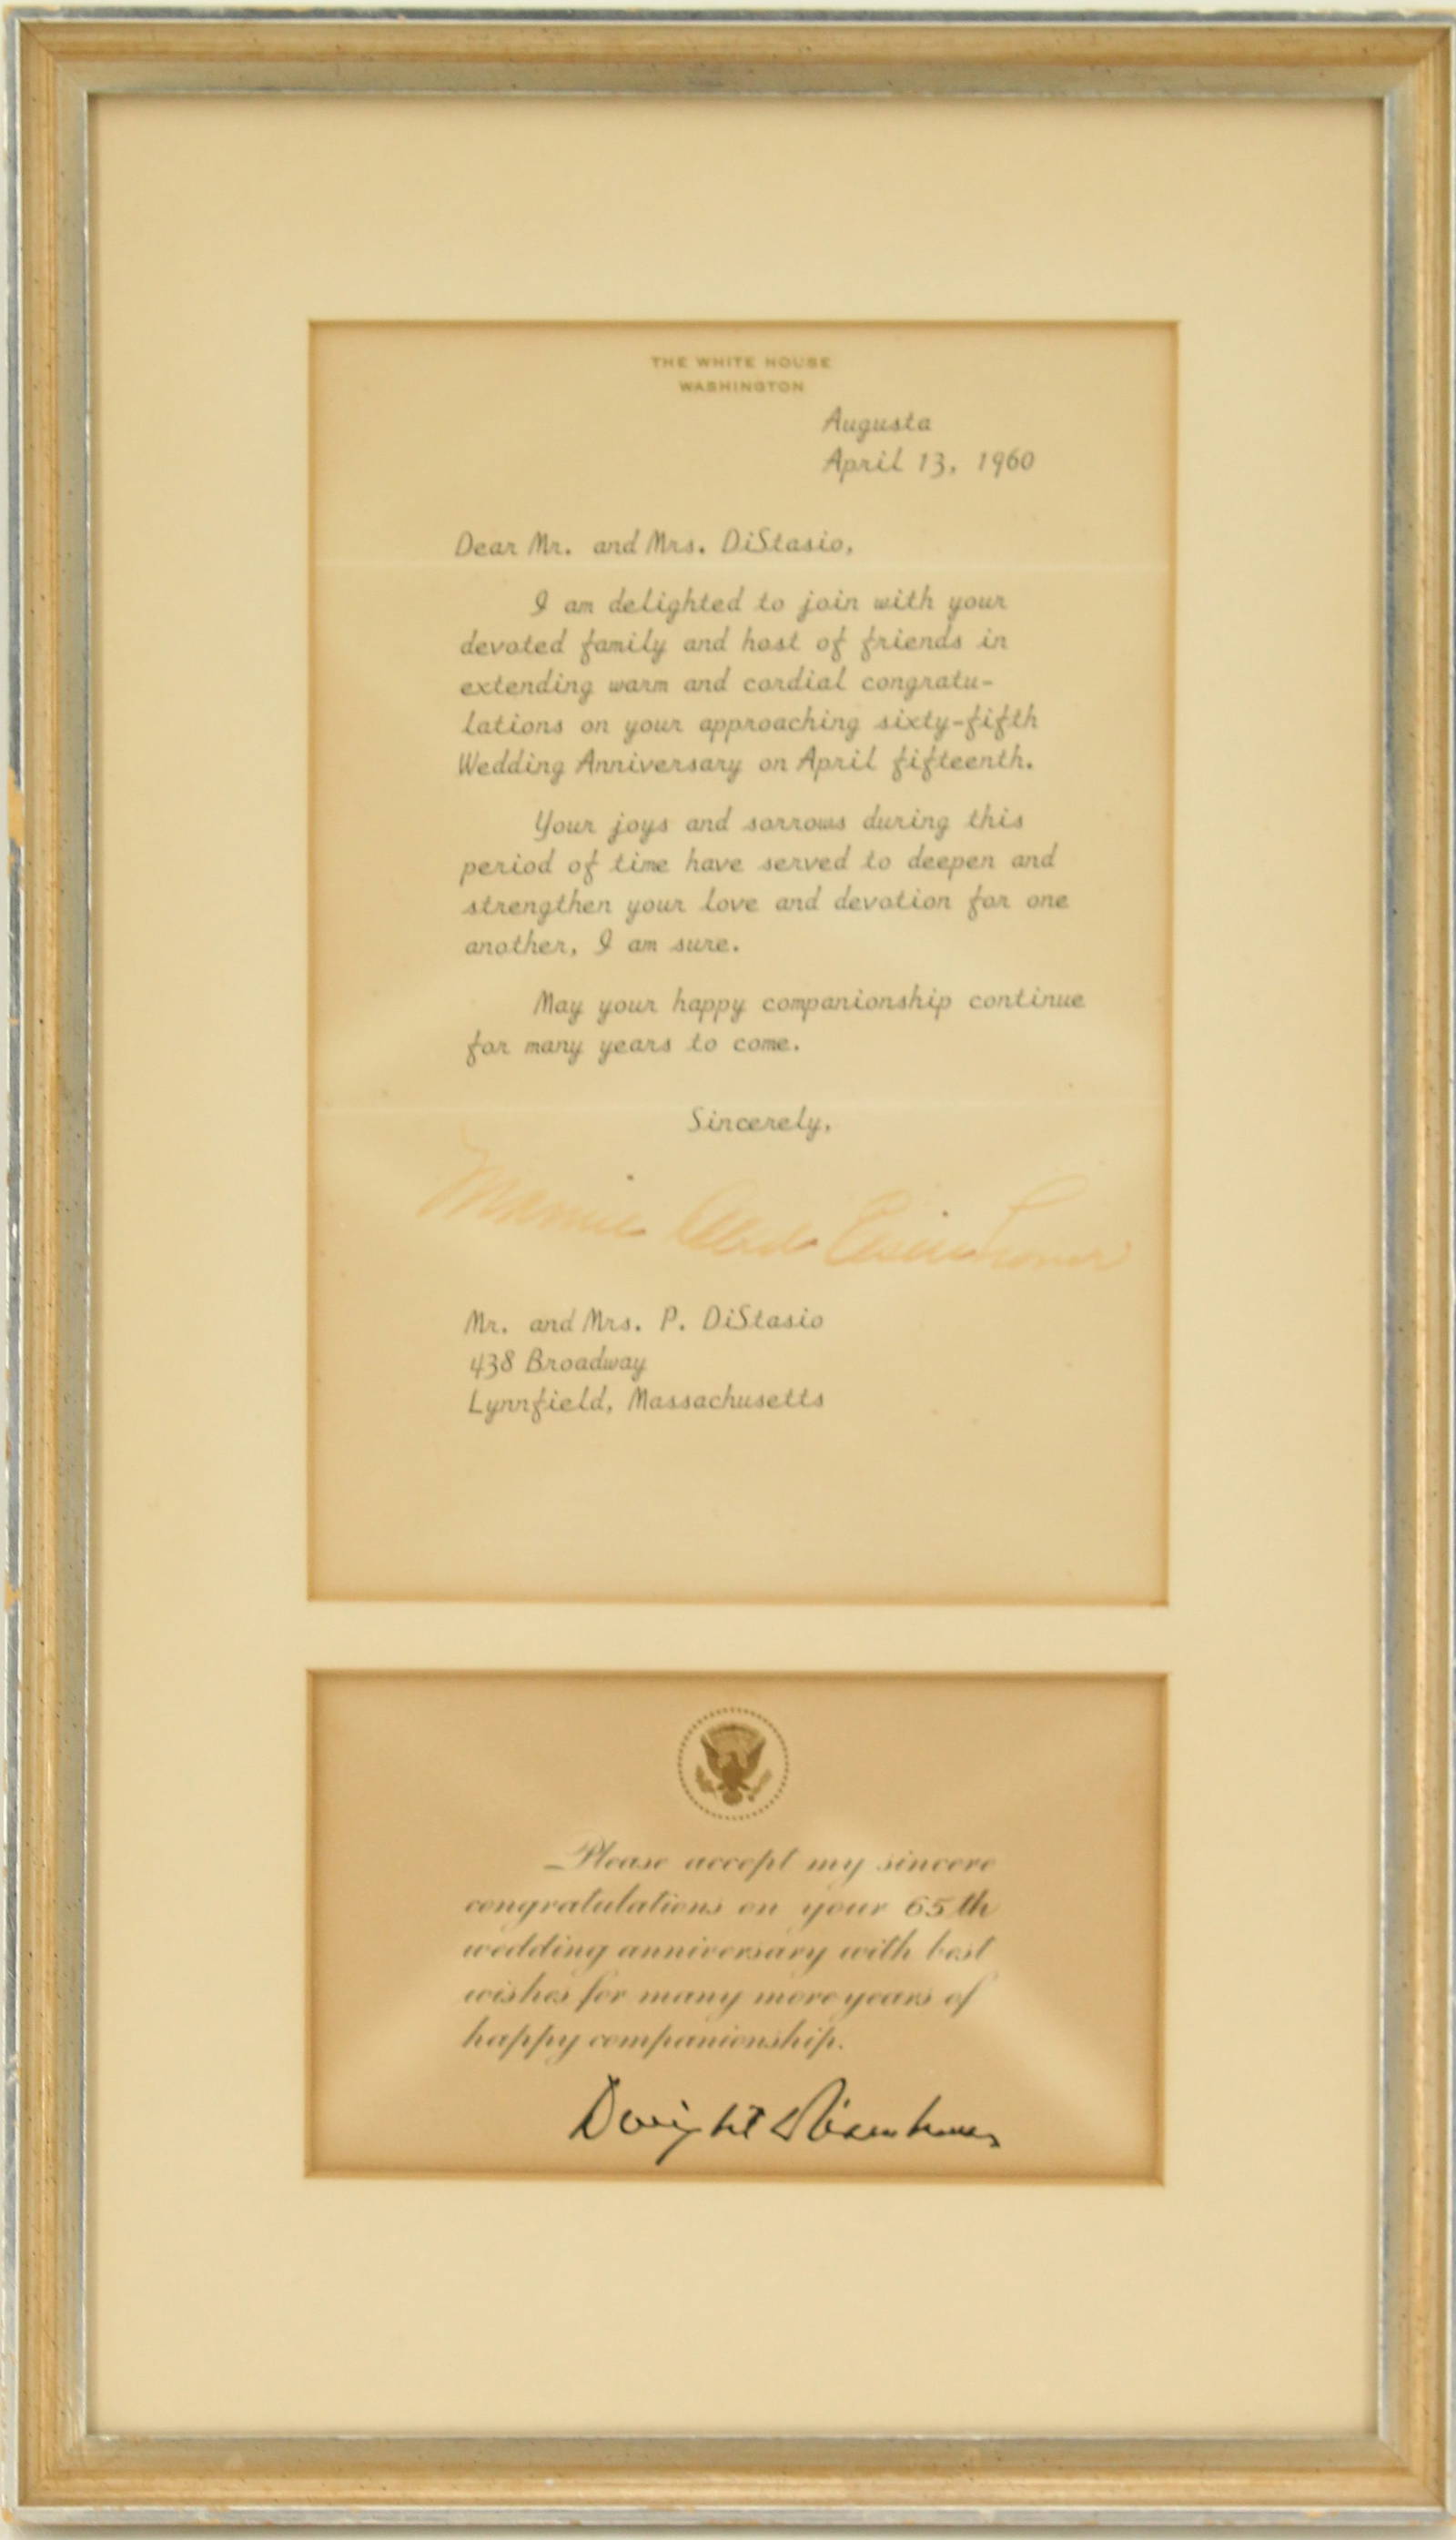 THE WHITE HOUSE
WASHINGTON
Augusta
April 13, 1960
Dear Mr. and Mrs. DiStasio,
I am delighted to join with your
devoted family and host of friends in
extending warm and cordial congratu-
lations on your approaching sixty-fifth
Wedding Anniversary on April fifteenth.
Your joys and sorrows during this
period of time have served to deepen and
strengthen your love and devotion for one
another, I am sure.
May your happy companionship continue
for many years to come.
Sincerely,
Mamie Doud Eisenhower
Mr. and Mrs. P. DiStasio
438 Broadway
Lynnfield, Massachusetts
Please accept my sincere
congratulations on your 65th
wedding anniversary with best
wishes for many more years of
happy companionship.
Dwight D Eisenhower